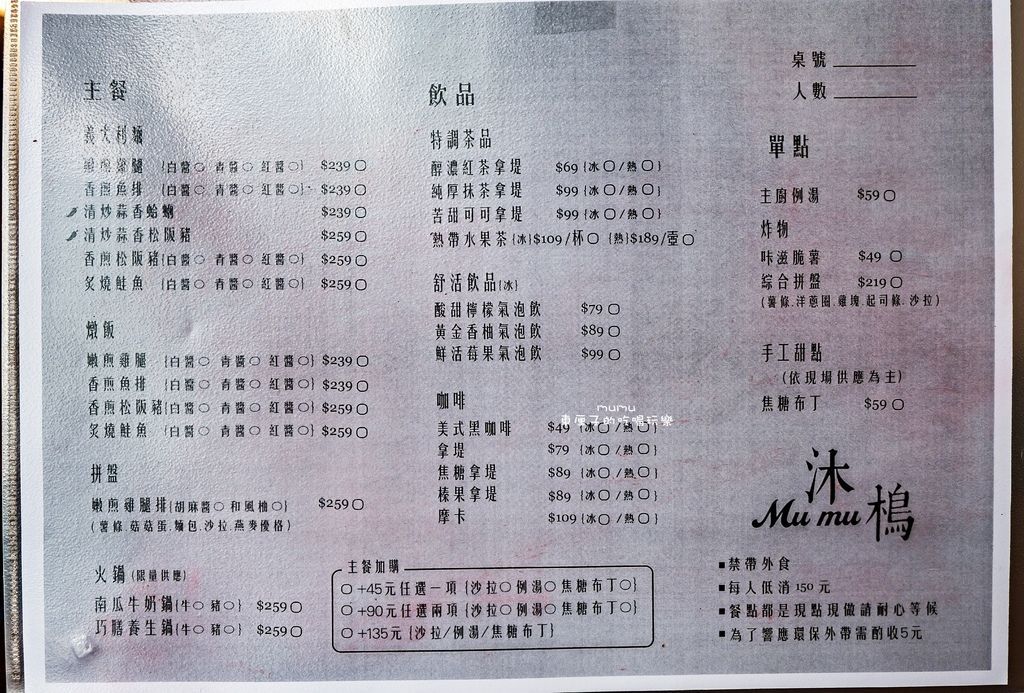 主餐
義大利麵
嫩煎雞腿 {白醬○ 青醬○ 紅醬○} $239○
香煎魚排 {白醬○ 青醬○ 紅醬○} $239○
清炒蒜香蛤蜊 $239○
清炒蒜香松阪豬 $259○
香煎松阪豬{白醬○ 青醬○ 紅醬○} $259○
炙燒鮭魚 {白醬○ 青醬○ 紅醬○} $259○
燉飯
嫩煎雞腿 {白醬○ 青醬○ 紅醬○} $239○
香煎魚排 {白醬○ 青醬○ 紅醬○} $239○
香煎松阪豬{白醬○ 青醬○ 紅醬○} $259○
炙燒鮭魚 {白醬○ 青醬○ 紅醬○} $259○
拼盤
嫩煎雞腿排{胡麻醬○ 和風柚○} $259○
(薯條.菇菇蛋.麵包.沙拉.燕麥優格)
火鍋(限量供應)
南瓜牛奶鍋{牛○ 豬○} $259○
巧膳養生鍋{牛○ 豬○} $259○
飲品
特調茶品
醇濃紅茶拿堤 $69 {冰○/熱○}
純厚抹茶拿堤 $99 {冰○/熱○}
苦甜可可拿堤 $99 {冰○/熱○}
熱帶水果茶{冰}$109/杯○ {熱}$189/壺○
舒活飲品{冰}
酸甜檸檬氣泡飲 $79○
黃金香柚氣泡飲 $89○
鮮活莓果氣泡飲 $99○
咖啡
美式黑咖啡 $49 {冰○/熱○}
拿堤 $79 {冰○/熱○}
焦糖拿堤 $89 {冰○/熱○}
榛果拿堤 $89 {冰○/熱○}
摩卡 $109{冰○/熱○}
主餐加購
○+45元任選一項{沙拉○例湯○焦糖布丁○}
○+90元任選兩項{沙拉○例湯○焦糖布丁○}
○+135元 {沙拉/例湯/焦糖布丁}
桌號
人數
單點
主廚例湯 $59○
炸物
咔滋脆薯 $49 ○
綜合拼盤 $219○
(薯條.洋蔥圈.雞塊.起司條.沙拉)
手工甜點
(依現場供應為主)
焦糖布丁 $59○
沐樢
Mu mu
■禁帶外食
■每人低消150元
■餐點都是現點現做請耐心等候
■為了響應環保外帶需酌收5元
mumu